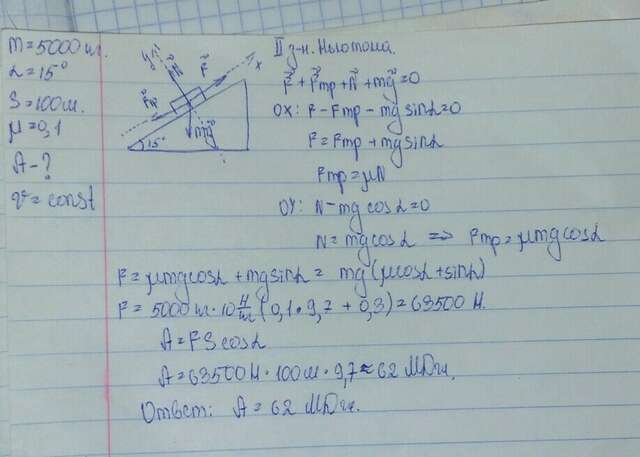 m = 5000 кг.
α = 15°
S = 100 м.
μ = 0,1
A - ?
v⃗ = const
y
N⃗
F⃗
x
F⃗тр
mg⃗
15°
II з-н. Ньютона.
F⃗ + F⃗тр + N⃗ + mg⃗ = 0
OX: F - Fтр - mg sinα = 0
F = Fтр + mg sinα
Fтр = μN
OY: N - mg cosα = 0
N = mg cosα => Fтр = μmg cosα
F = μmg cosα + mg sinα = mg (μcosα + sinα)
F = 5000 кг · 10 Н/кг (0,1 · 9,7 + 0,3) = 63500 Н.
A = FS cosα
A = 63500 Н · 100 м · 9,7 ≈ 62 МДж.
Ответ: A = 62 МДж.